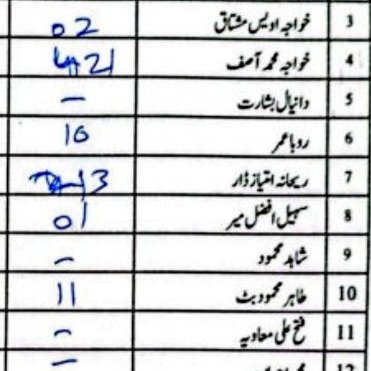 3 خواجہ اویس مشتاق 02
4 خواجہ محمد آصف 21
5 دانیال بشارت -
6 روبا عمر 10
7 ریحانہ امتیاز ڈار 13
8 سہیل افضل میر 01
9 شاہد محمود -
10 طاہر محمود بٹ 11
11 فتح علی معاویہ -
12 -